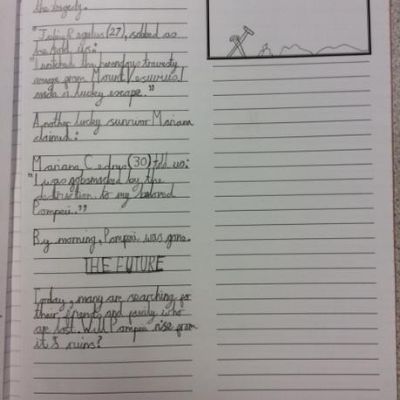 the tragedy.
"Felix Regulus (27), sobbed as
he told us:
"I watched the horrendous travesty
rage from Mount Vesuvius. I
made a lucky escape."
Another lucky survivor Mariana
claimed:
Mariana Cedrus (30) told us:
"I was gobsmacked by the
destruction to my beloved
Pompeii."
By morning, Pompeii was gone.
THE FUTURE
Today, many are searching for
their friends and family who
are lost. Will Pompeii rise from
it's ruins?